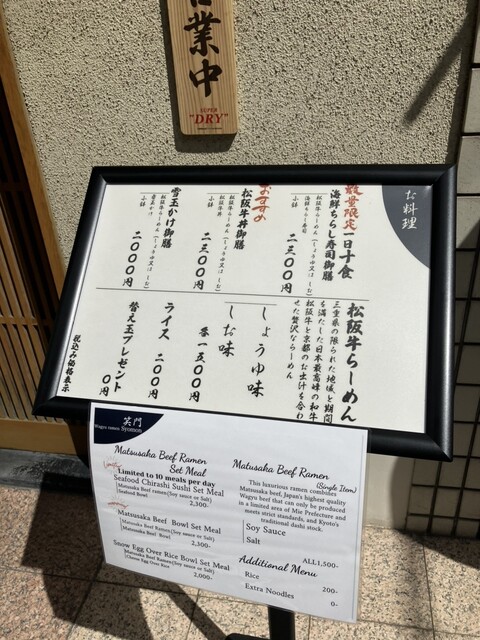 営業中
SUPER
"DRY"
お料理
数量限定一日十食
海鮮ちらし寿司御膳
松阪牛らーめん(しょうゆ又はしお)
海鮮ちらし寿司
小鉢
二三〇〇円
おすすめ
松阪牛丼御膳
松阪牛らーめん(しょうゆ又はしお)
松阪牛丼
小鉢
二三〇〇円
雪玉かけ御膳
松阪牛らーめん(しょうゆ又はしお)
雪玉かけ
小鉢
二〇〇〇円
松阪牛らーめん
三重県の限られた地域と期間
を満たした日本最高峰の和牛
松阪牛と京都のお出汁を合わ
せた贅沢ならーめん
しょうゆ味
しお味
各一五〇〇円
ライス 二〇〇円
替え玉プレゼント 〇円
税込み価格表示
笑門
Wagyu ramen Syomon
Matsusaka Beef Ramen
Set Meal
Limited to 10 meals per day
Seafood Chirashi Sushi Set Meal
Matsusaka Beef ramen(Soy sauce or Salt)
Seafood Bowl
2,300-
Matsusaka Beef Bowl Set Meal
Matsusaka Beef Ramen(Soy sauce or Salt)
Matsusaka Beef Bowl
2,300-
Snow Egg Over Rice Bowl Set Meal
Matsusaka Beef Ramen(Soy sauce or Salt)
Snow Egg Over Rice
2,000-
Matsusaka Beef Ramen
(Single Item)
This luxurious ramen combines
Matsusaka beef, Japan's highest quality
Wagyu beef that can only be produced
in a limited area of Mie Prefecture and
meets strict standards, and Kyoto's
traditional dashi stock.
Soy Sauce
Salt
ALL1,500-
Additional Menu
Rice 200-
Extra Noodles 0-